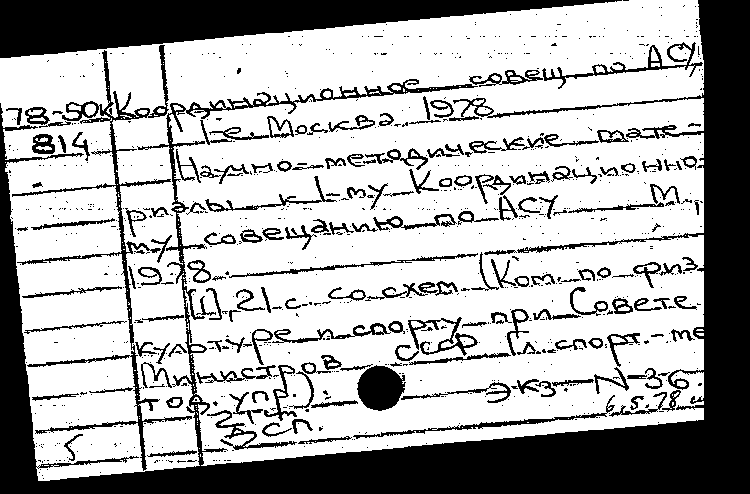 78-50к Координационное совещ по АСУ,
814 1-е. Москва. 1978
Научно-методические мате-
риалы к 1-му Координационно-
му совещанию по АСУ М.,
1978.
[1], 21 с со схем (Ком. по физ
культуре и спорту при Совете
Министров СССР Гл. спорт.-ме
тод. упр.). Экз. N 36.
6.5.78
5 сп.
5